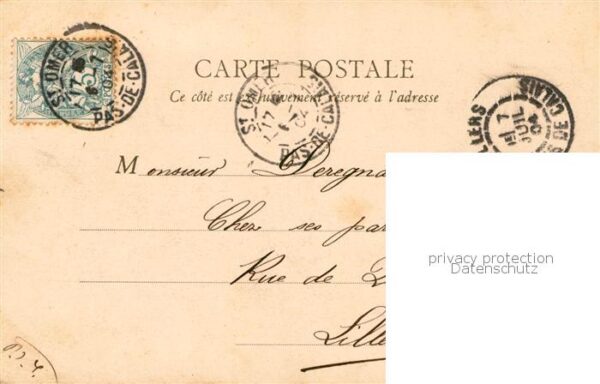 CARTE POSTALE
Ce côté est exclusivement réservé à l'adresse
ST OMER
PAS-DE-CALAIS
ST OMER
17
PAS-DE-CALAIS
LLERS
7
JUIL
04
DE CALAIS
5
Monsieur Peregna
Chez ses par
Rue de
Lille
privacy protection
Datenschutz